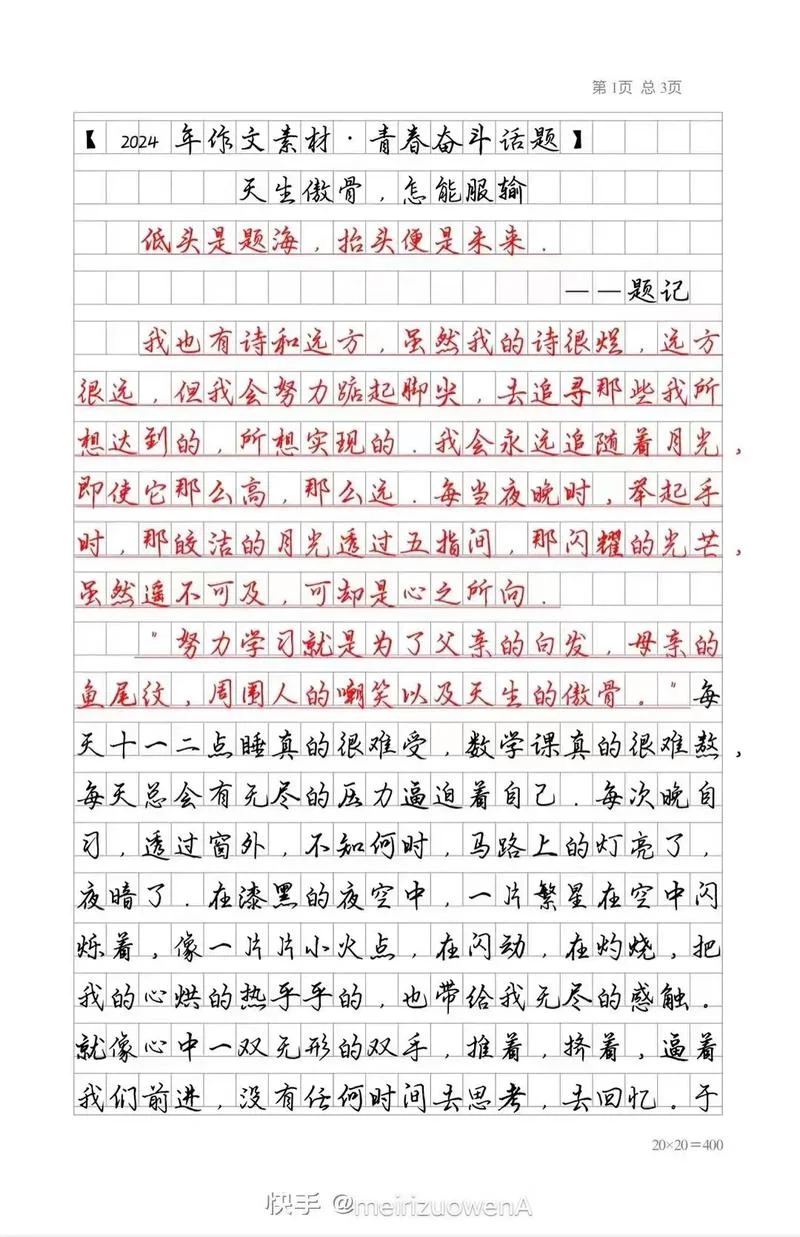 第1页 总3页
【2024年作文素材·青春奋斗话题】
天生傲骨，怎能服输
低头是题海，抬头便是未来．
——题记
我也有诗和远方，虽然我的诗很烂，远方
很远，但我会努力踮起脚尖，去追寻那些我所
想达到的，所想实现的．我会永远追随着月光，
即使它那么高，那么远．每当夜晚时，举起手
时，那皎洁的月光透过五指间，那闪耀的光芒，
虽然遥不可及，可却是心之所向．
"努力学习就是为了父亲的白发，母亲的
鱼尾纹，周围人的嘲笑以及天生的傲骨。"每
天十一二点睡真的很难受，数学课真的很难熬，
每天总会有无尽的压力逼迫着自己．每次晚自
习，透过窗外，不知何时，马路上的灯亮了，
夜暗了．在漆黑的夜空中，一片繁星在空中闪
烁着，像一片片小火点，在闪动，在灼烧，把
我的心烘的热乎乎的，也带给我无尽的感触。
就像心中一双无形的双手，推着，挤着，逼着
我们前进，没有任何时间去思考，去回忆。于
20×20=400
快手 @meirizuowenA